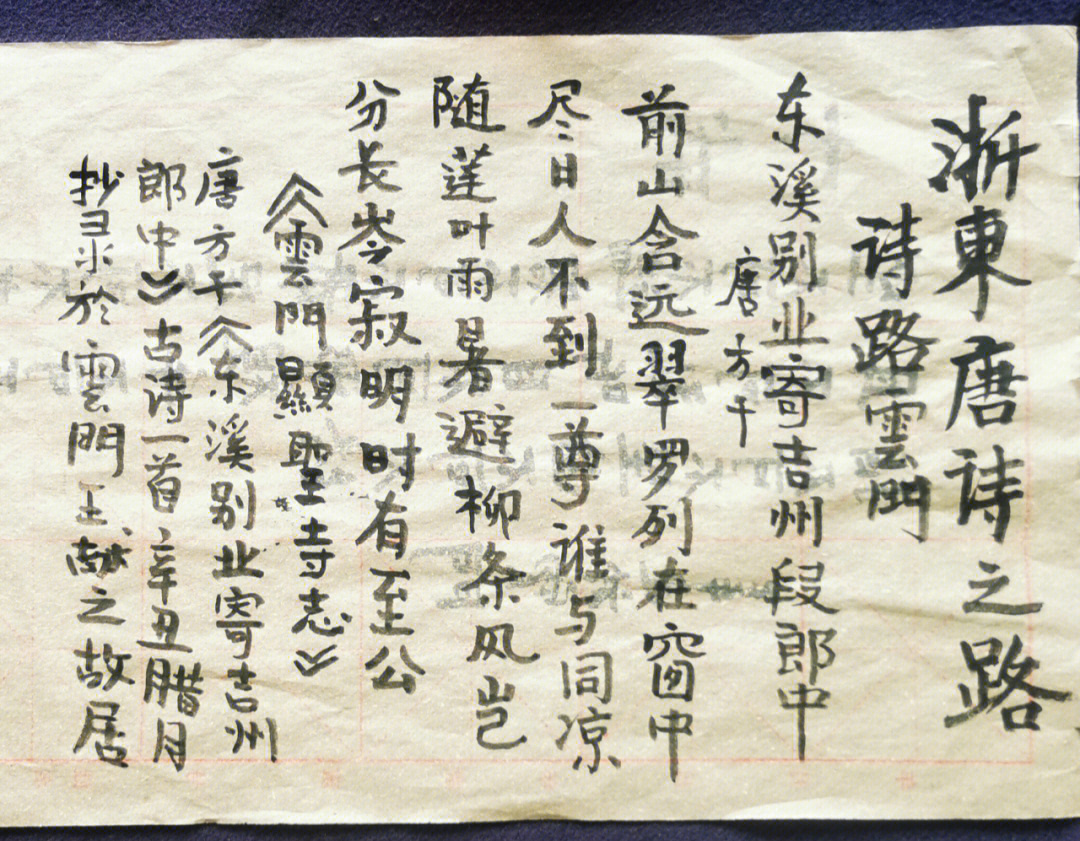 浙東唐诗之路
诗路雲門
东溪别业寄吉州段郎中
唐方干
前山含远翠罗列在窗中
尽日人不到一尊谁与同凉
随莲叶雨暑避柳条风岂
分长岑寂明时有至公
《雲門顯聖寺志》
唐方干《东溪别业寄吉州
郎中》古诗一首辛丑腊月
抄录於雲門王献之故居